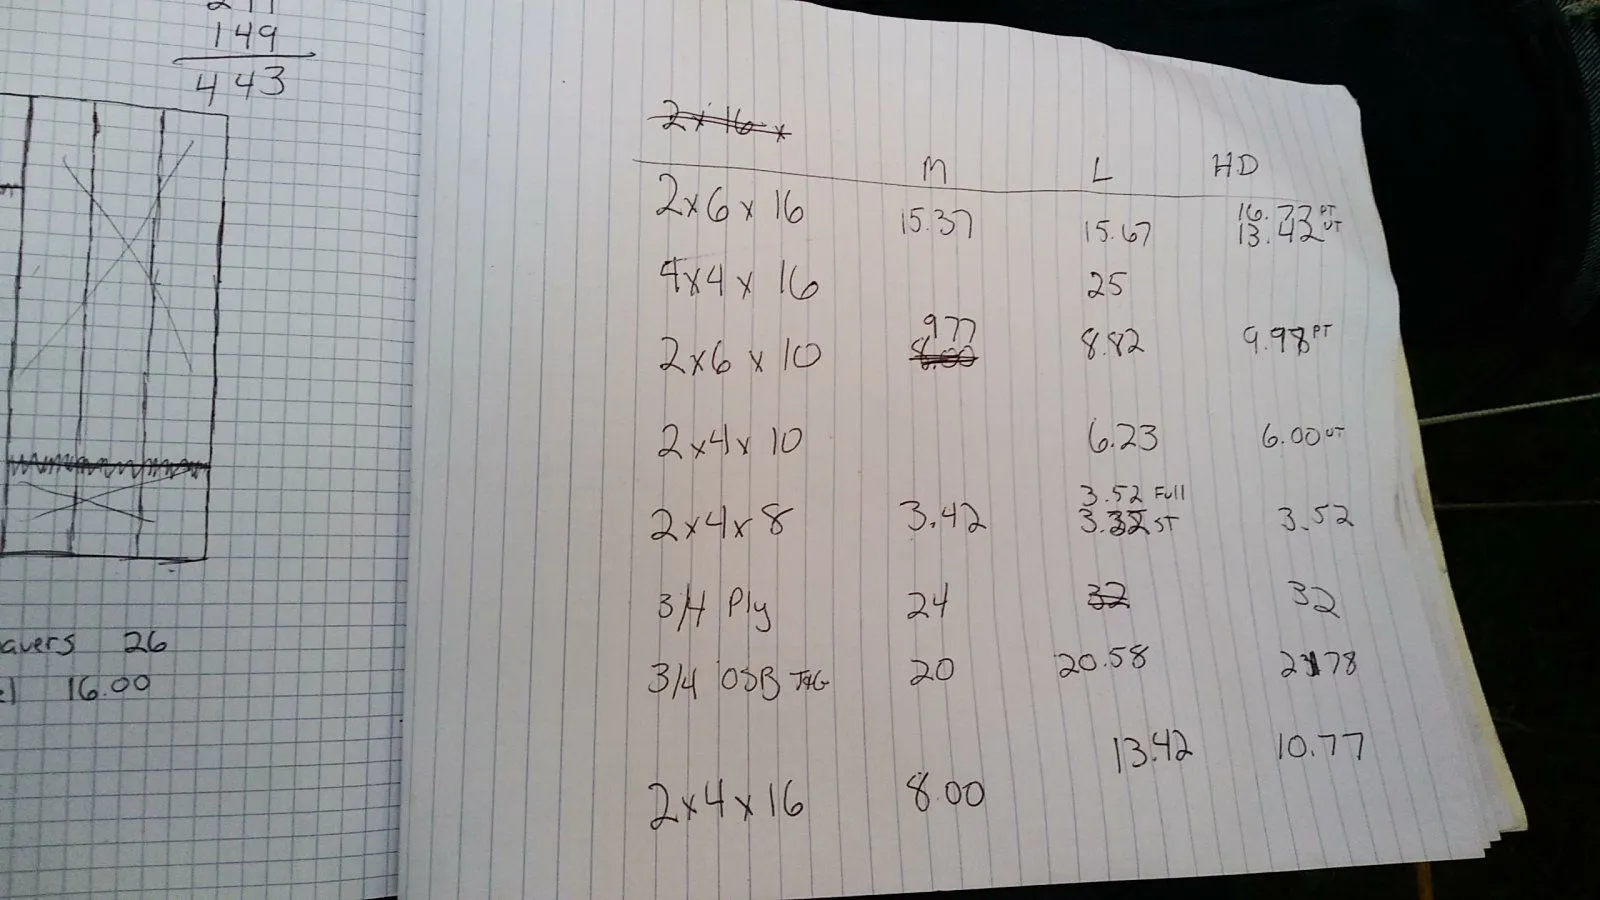 149
443
avers 26
16.00
2 x 16 x
M L HD
2x6 x 16 15.37 15.67 16.73 PT
13.42 UT
4x4 x 16 25
9 77
2x6 x 10 8.00 8.82 9.98 PT
2x4x 10 6.23 6.00 UT
3.52 Full
2x4x8 3.42 3.32 ST 3.52
3/4 Ply 24 32 32
3/4 OSB T&G 20 20.58 21 78
13.42 10.77
2x4x16 8.00